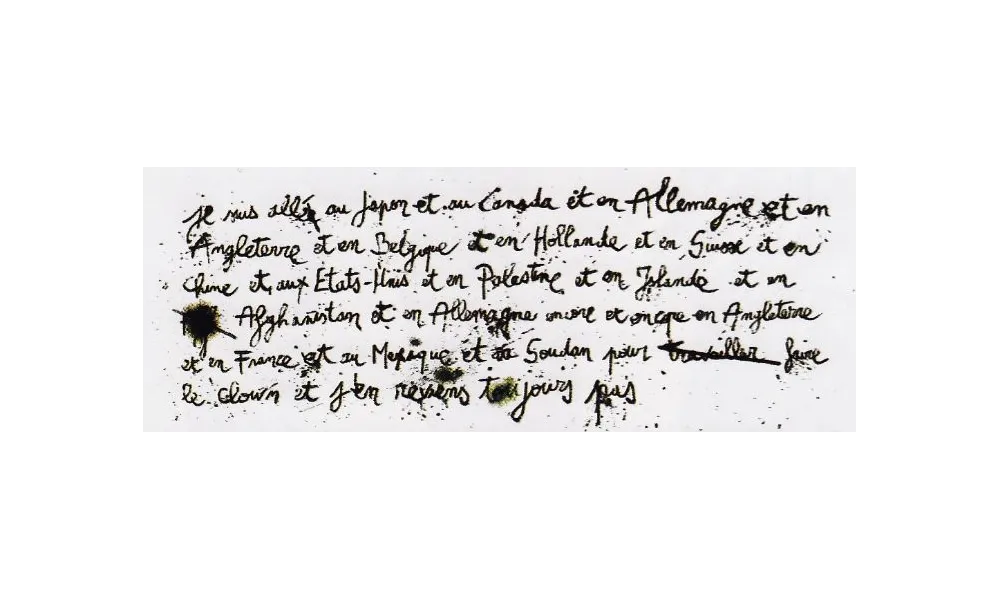 je suis allé au Japon et au Canada et en Allemagne et en
Angleterre et en Belgique et en Hollande et en Suisse et en
Chine et aux Etats-Unis et en Palestine et en Islande et en
Afghanistan et en Allemagne encore et encore en Angleterre
et en France et au Mexique et au Soudan pour travailler faire
le clown et j'en reviens toujours pas